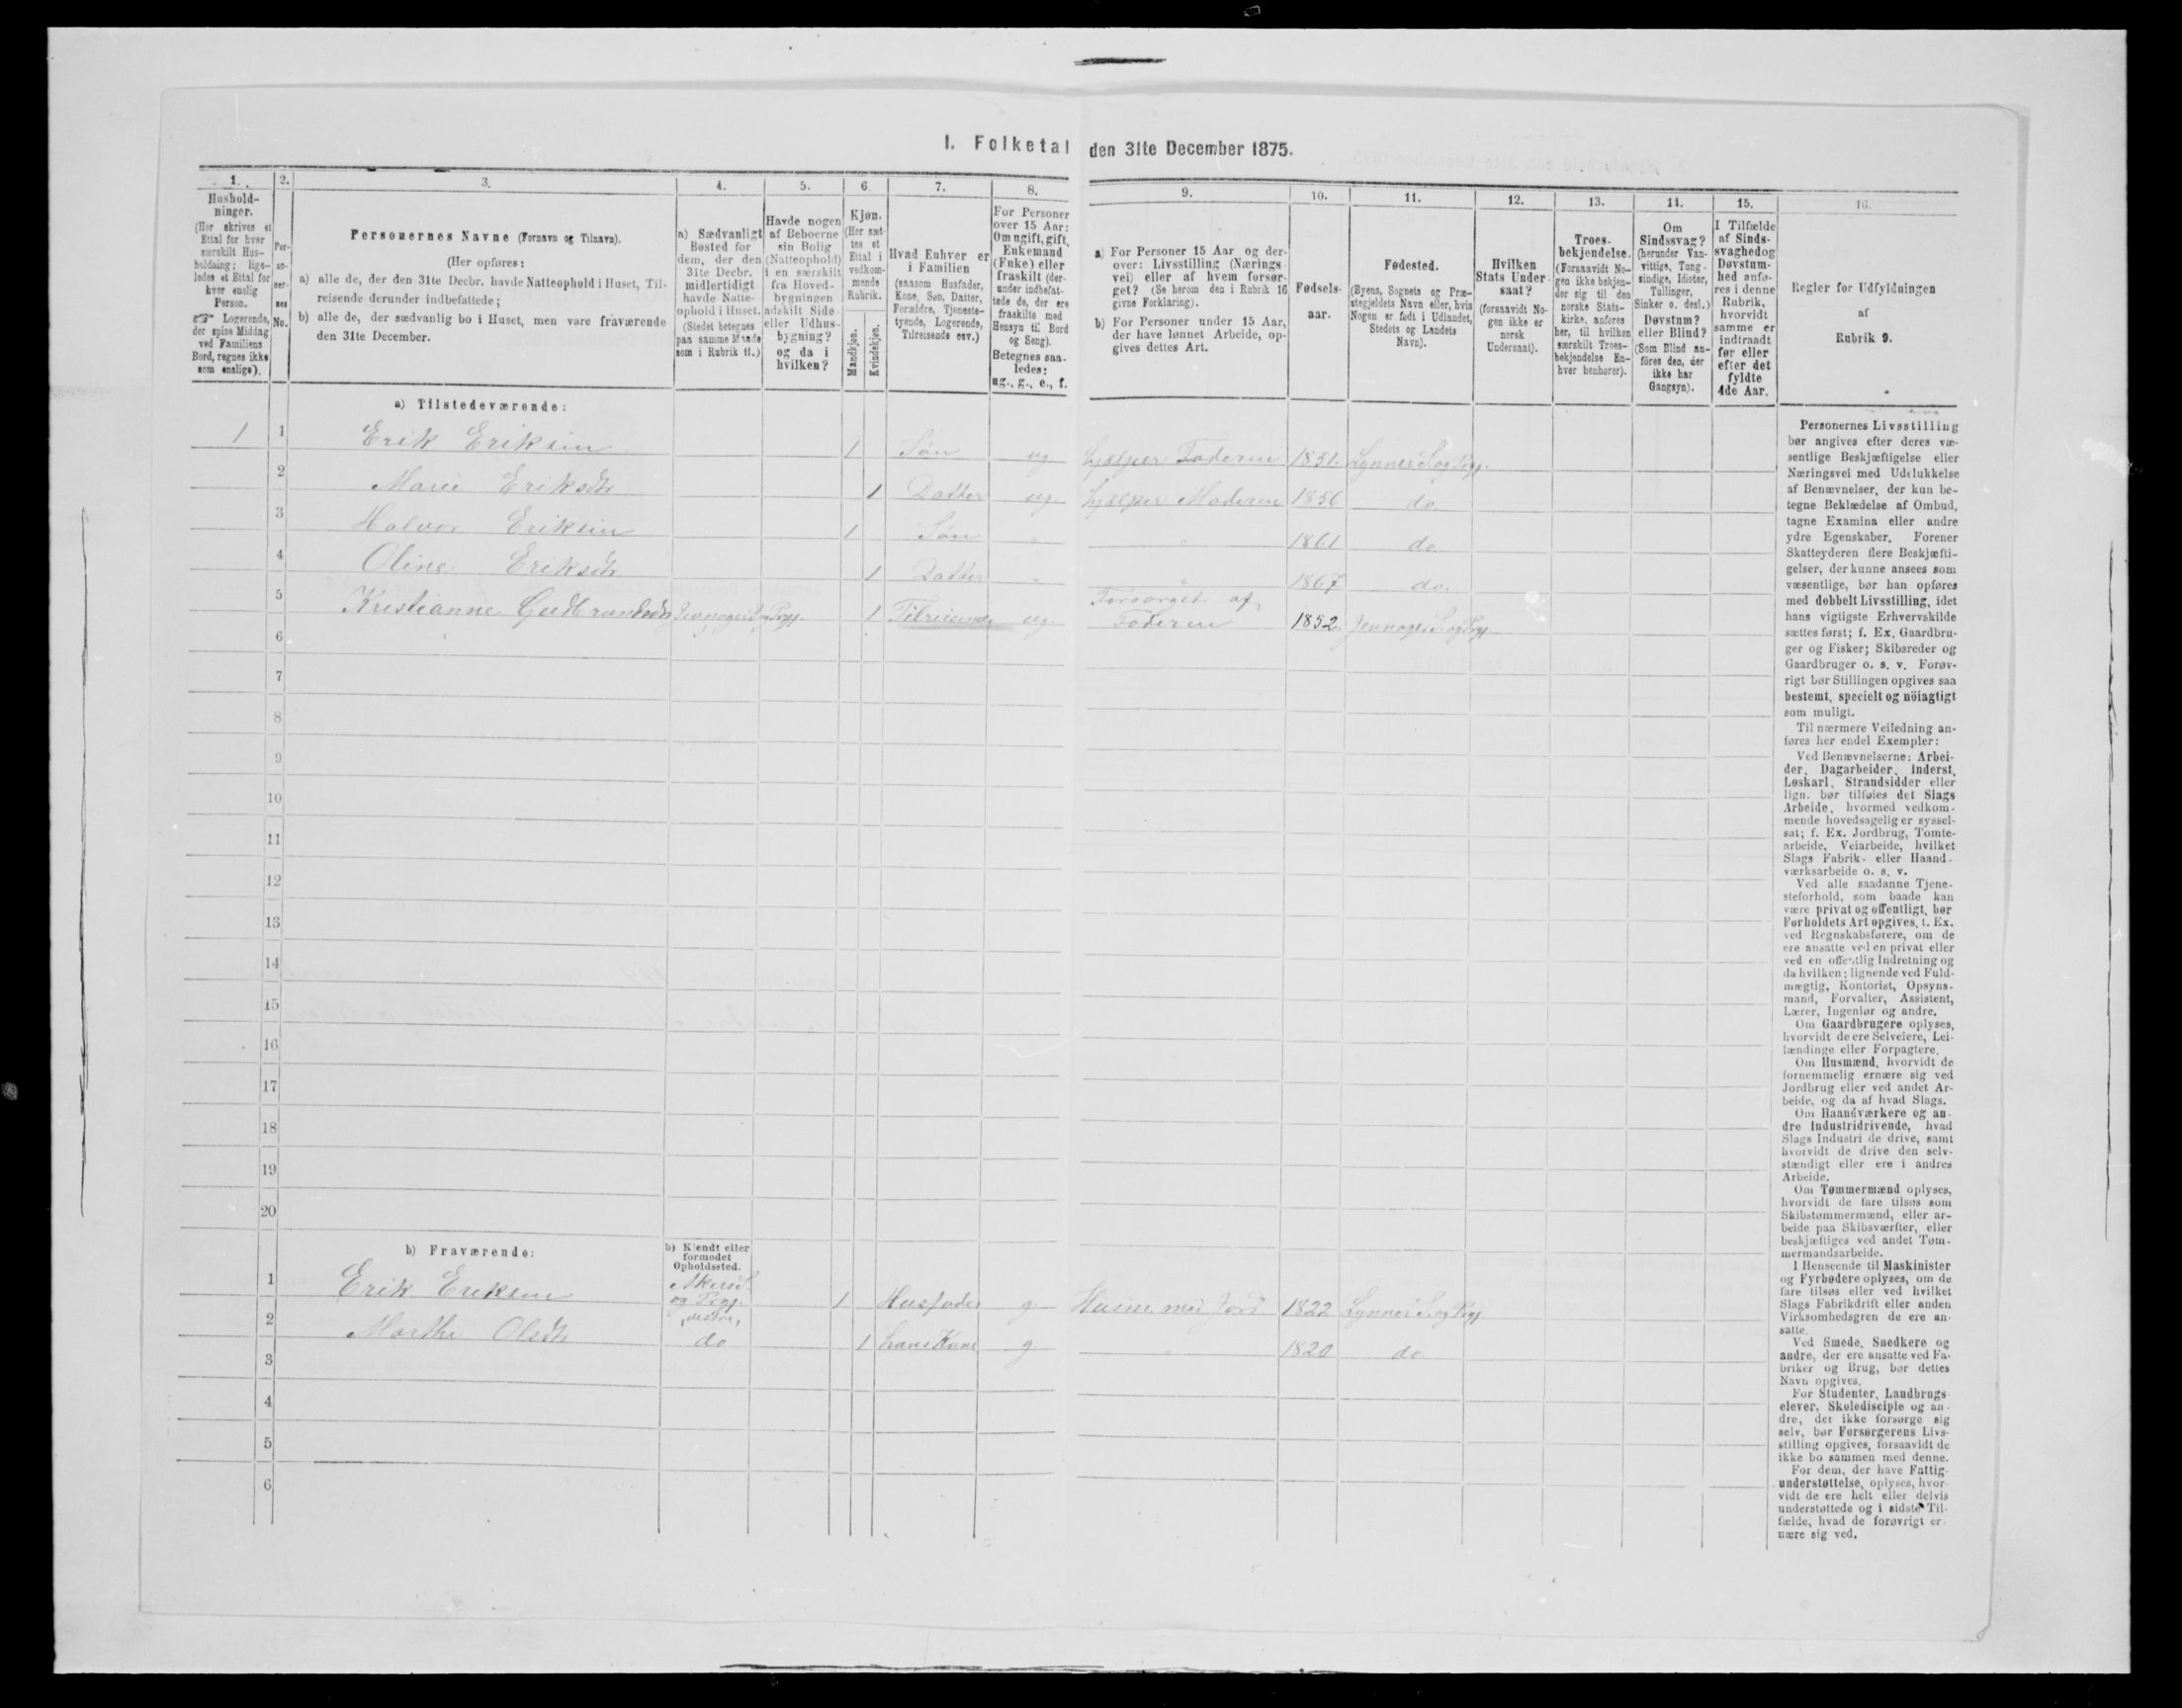 I. Folketal den 31te December 1875.
1. 2. 3. 4. 5. 6. 7. 8. 9. 10. 11. 12. 13. 14. 15. 16.
Hushold-
ninger.
(Her skrives et
Ettal for hver
særskilt Hus-
holdning; lige-
ledes et Ettal for
hver enslig
Person.
☞ Logerende,
der spise Middag
ved Familiens
Bord, regnes ikke
som enslige).
Per-
so-
ner-
nes
No.
Personernes Navne (Fornavn og Tilnavn).
(Her opføres:
a) alle de, der den 31te Decbr. havde Natteophold i Huset, Til-
reisende derunder indbefattede;
b) alle de, der sædvanlig bo i Huset, men vare fraværende
den 31te December.
a) Sædvanligt
Bosted for
dem, der den
31te Decbr.
midlertidigt
havde Natte-
ophold i Huset.
(Stedet betegnes
paa samme Maade
som i Rubrik 11.)
Havde nogen
af Beboerne
sin Bolig
(Natteophold)
i en særskilt
fra Hoved-
bygningen
adskilt Side-
eller Udhus-
bygning?
og da i
hvilken?
Kjøn.
(Her sæt-
tes et
Ettal i
vedkom-
mende
Rubrik.
Mandkjøn.
Kvindekjøn.
Hvad Enhver er
i Familien
(saasom Husfader,
Kone, Søn, Datter,
Forældre, Tjeneste-
tyende, Logerende,
Tilreisende osv.)
For Personer
over 15 Aar:
Om ugift, gift,
Enkemand
(Enke) eller
fraskilt (der-
under indbefat-
tede de, der ere
fraskilte med
Hensyn til Bord
og Seng).
Betegnes saa-
ledes:
ug., g., e., f.
a) For Personer 15 Aar og der-
over: Livsstilling (Nærings-
vei) eller af hvem forsør-
get? (Se herom den i Rubrik 16
givne Forklaring).
b) For Personer under 15 Aar,
der have lønnet Arbeide, op-
gives dettes Art.
Fødsels-
aar.
Fødested.
(Byens, Sognets og Præ-
stegjeldets Navn eller, hvis
Nogen er født i Udlandet,
Stedets og Landets
Navn).
Hvilken
Stats Under-
saat?
(forsaavidt No-
gen ikke er
norsk
Undersaat).
Troes-
bekjendelse.
(Forsaavidt No-
gen ikke bekjen-
der sig til den
norske Stats-
kirke, anføres
her, til hvilken
særskilt Troes-
bekjendelse En-
hver henhører).
Om
Sindssvag?
(herunder Van-
vittige, Tung-
sindige, Idioter,
Tullinger,
Sinker o. desl.)
Døvstum?
eller Blind?
(Som Blind an-
föres den, der
ikke har
Gangsyn).
I Tilfælde
af Sinds-
svaghed og
Døvstum-
hed anfø-
res i denne
Rubrik,
hvorvidt
samme er
indtraadt
før eller
efter det
fyldte
4de Aar.
Regler for Udfyldningen
af
Rubrik 9.
a) Tilstedeværende:
1 1 Erik Eriksen 1 Søn ug. hjælper Faderen 1851. Lynner S. og Prgj.
2 Marie Eriksdtr 1 Datter ug. hjælper Moderen 1856 do.
3 Halvor Eriksen 1 Søn " " 1861 do.
4 Oline Eriksdtr 1 Datter " " 1867 do.
5 Kristianne Gudbrandsdtr Jevnager S. og Prgj. 1 Tilreisende ug. Forsørget af
Faderen 1852. Jevnager S. og Prgj.
6
7
8
9
10
11
12
13
14
15
16
17
18
19
20
b) Fraværende:
b) Kjendt eller
formodet
Opholdssted.
1 Erik Eriksen Akers S.
og Prgj. 1 Husfader g. Husm. med Jord 1822 Lynner S. og Prgj.
2 Marthe Olsdtr do 1 hans Kone g " 1820 do.
3
4
5
6
Personernes Livsstilling
bør angives efter deres væ-
sentlige Beskjæftigelse eller
Næringsvei med Udelukkelse
af Benævnelser, der kun be-
tegne Beklædelse af Ombud,
tagne Examina eller andre
ydre Egenskaber. Forener
Skatteyderen flere Beskjæfti-
gelser, der kunne ansees som
væsentlige, bør han opføres
med dobbelt Livsstilling, idet
hans vigtigste Erhvervskilde
sættes først; f. Ex. Gaardbru-
ger og Fisker; Skibsreder og
Gaardbruger o. s. v. Forøv-
rigt bør Stillingen opgives saa
bestemt, specielt og nöiagtigt
som muligt.
Til nærmere Veiledning an-
føres her endel Exempler:
Ved Benævnelserne: Arbei-
der, Dagarbeider, Inderst,
Løskarl, Strandsidder eller
lign. bør tilføies det Slags
Arbeide, hvormed vedkom-
mende hovedsagelig er syssel-
sat; f. Ex. Jordbrug, Tomte-
arbeide, Veiarbeide, hvilket
Slags Fabrik- eller Haand-
værksarbeide o. s. v.
Ved alle saadanne Tjene-
steforhold, som baade kan
være privat og offentligt, bør
Forholdets Art opgives, t. Ex.
ved Regnskabsførere, om de
ere ansatte ved en privat eller
ved en offentlig Indretning og
da hvilken; lignende ved Fuld-
mægtig, Kontorist, Opsyns-
mand, Forvalter, Assistent,
Lærer, Ingeniør og andre.
Om Gaardbrugere oplyses,
hvorvidt de ere Selveiere, Lei-
lændinge eller Forpagtere.
Om Husmænd, hvorvidt de
fornemmelig ernære sig ved
Jordbrug eller ved andet Ar-
beide, og da af hvad Slags.
Om Haandværkere og an-
dre Industridrivende, hvad
Slags Industri de drive, samt
hvorvidt de drive den selv-
stændigt eller ere i andres
Arbeide.
Om Tømmermænd oplyses,
hvorvidt de fare tilsøs som
Skibstømmermænd, eller ar-
beide paa Skibsværfter, eller
beskjæftiges ved andet Tøm-
mermandsarbeide.
I Henseende til Maskinister
og Fyrbødere oplyses, om de
fare tilsøs eller ved hvilket
Slags Fabrikdrift eller anden
Virksomhedsgren de ere an-
satte.
Ved Smede, Snedkere og
andre, der ere ansatte ved Fa-
briker og Brug, bør dettes
Navn opgives.
For Studenter, Landbrugs-
elever, Skoledisciple og an-
dre, der ikke forsørge sig
selv, bør Forsørgerens Livs-
stilling opgives, forsaavidt de
ikke bo sammen med denne.
For dem, der have Fattig-
understøttelse, oplyses, hvor-
vidt de ere helt eller delvis
understøttede og i sidste Til-
fælde, hvad de forøvrigt er-
nære sig ved.